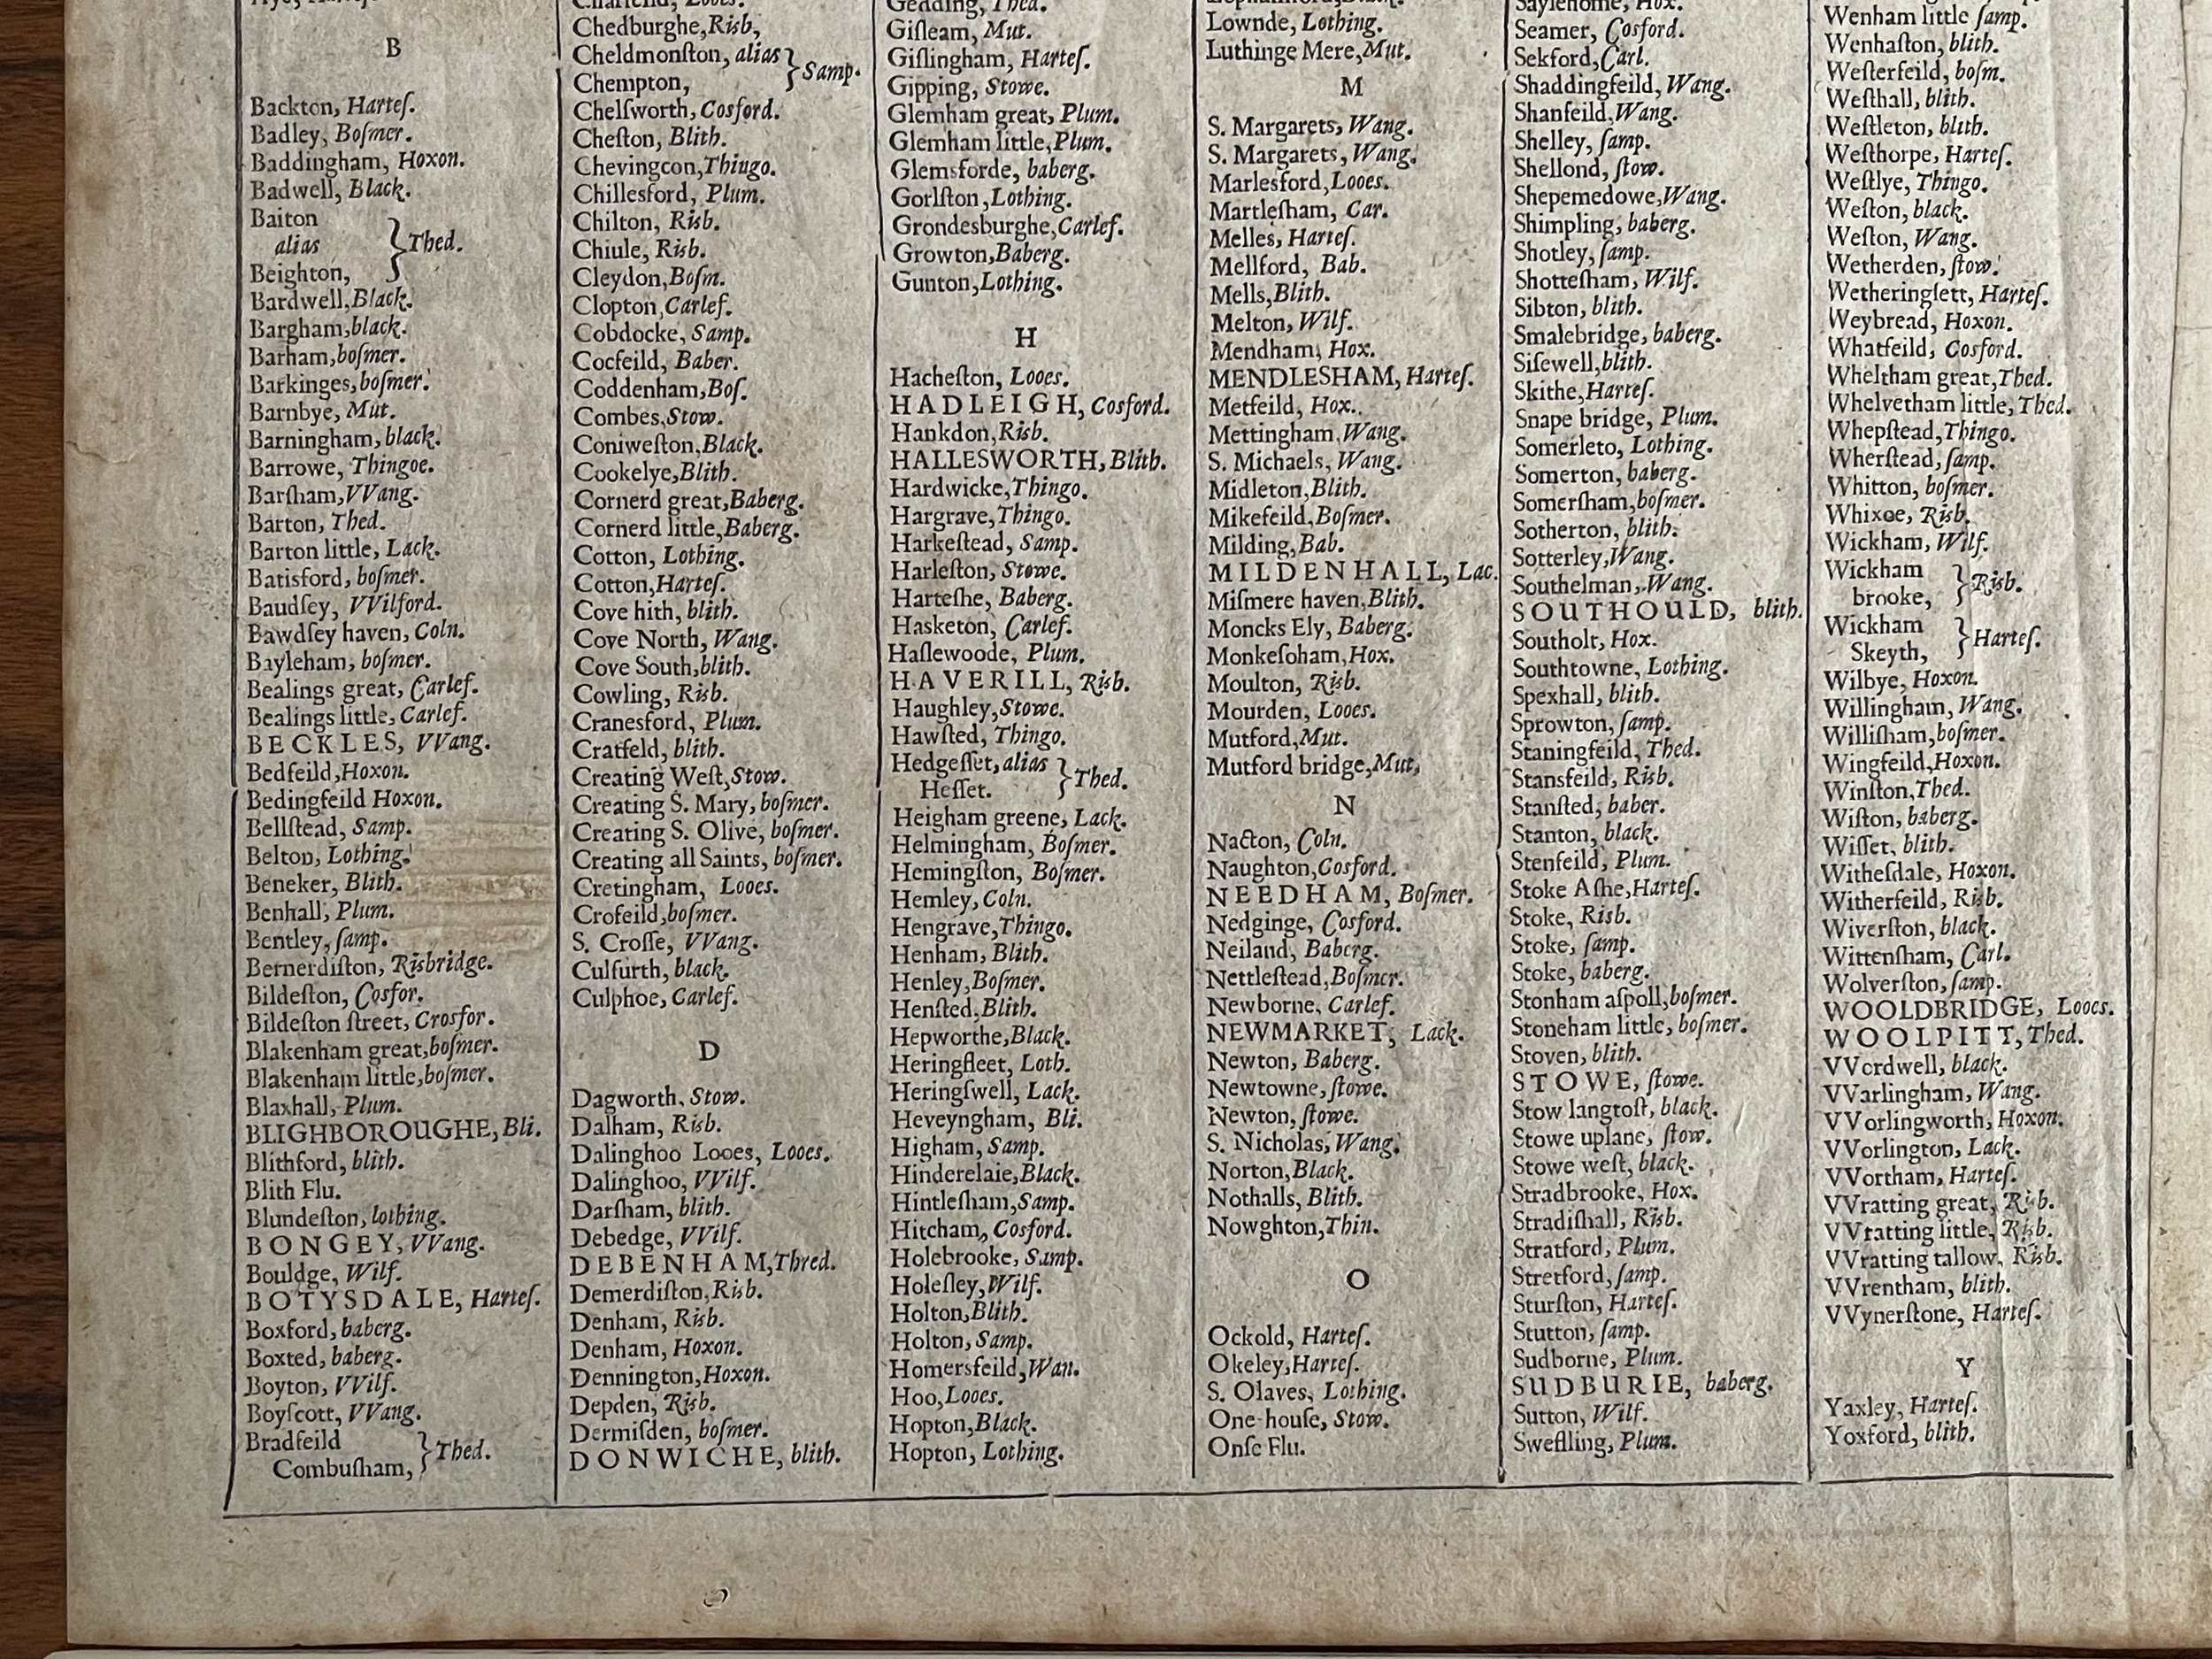 B
Backton, Harteſ.
Badley, Boſmer.
Baddingham, Hoxon.
Badwell, Black.
Baiton
alias } Thed.
Beighton,
Bardwell, Black.
Bargham, black.
Barham, boſmer.
Barkinges, boſmer.
Barnbye, Mut.
Barningham, black.
Barrowe, Thingoe.
Barſham, VVang.
Barton, Thed.
Barton little, Lack.
Batisford, boſmer.
Baudſey, VVilford.
Bawdſey haven, Coln.
Bayleham, boſmer.
Bealings great, Carleſ.
Bealings little, Carleſ.
BECKLES, VVang.
Bedfeild, Hoxon.
Bedingfeild Hoxon.
Bellſtead, Samp.
Belton, Lothing.
Beneker, Blith.
Benhall, Plum.
Bentley, ſamp.
Bernerdiſton, Risbridge.
Bildeſton, Cosfor.
Bildeſton ſtreet, Crosfor.
Blakenham great, boſmer.
Blakenham little, boſmer.
Blaxhall, Plum.
BLIGHBOROUGHE, Bli.
Blithford, blith.
Blith Flu.
Blundeſton, lothing.
BONGEY, VVang.
Bouldge, Wilf.
BOTYSDALE, Harteſ.
Boxford, baberg.
Boxted, baberg.
Boyton, VVilf.
Boyſcott, VVang.
Bradfeild } Thed.
Combuſham,
Chedburghe, Risb,
Cheldmonſton, alias } Samp.
Chempton,
Chelſworth, Cosford.
Cheſton, Blith.
Chevingcon, Thingo.
Chillesford, Plum.
Chilton, Risb.
Chiule, Risb.
Cleydon, Boſm.
Clopton, Carleſ.
Cobdocke, Samp.
Cocfeild, Baber.
Coddenham, Boſ.
Combes, Stow.
Coniweſton, Black.
Cookelye, Blith.
Cornerd great, Baberg.
Cornerd little, Baberg.
Cotton, Lothing.
Cotton, Harteſ.
Cove hith, blith.
Cove North, Wang.
Cove South, blith.
Cowling, Risb.
Cranesford, Plum.
Cratfeld, blith.
Creating Weſt, Stow.
Creating S. Mary, boſmer.
Creating S. Olive, boſmer.
Creating all Saints, boſmer.
Cretingham, Looes.
Crofeild, boſmer.
S. Croſſe, VVang.
Culfurth, black.
Culphoe, Carleſ.
D
Dagworth, Stow.
Dalham, Risb.
Dalinghoo Looes, Looes.
Dalinghoo, VVilf.
Darſham, blith.
Debedge, VVilf.
DEBENHAM, Thred.
Demerdiſton, Risb.
Denham, Risb.
Denham, Hoxon.
Dennington, Hoxon.
Depden, Risb.
Dermiſden, boſmer.
DONWICHE, blith.
Gedding, Thed.
Giſleam, Mut.
Giſlingham, Harteſ.
Gipping, Stowe.
Glemham great, Plum.
Glemham little, Plum.
Glemsforde, baberg.
Gorlſton, Lothing.
Grondesburghe, Carleſ.
Growton, Baberg.
Gunton, Lothing.
H
Hacheſton, Looes.
HADLEIGH, Cosford.
Hankdon, Risb.
HALLESWORTH, Blith.
Hardwicke, Thingo.
Hargrave, Thingo.
Harkeſtead, Samp.
Harleſton, Stowe.
Harteſhe, Baberg.
Hasketon, Carleſ.
Haſlewoode, Plum.
HAVERILL, Risb.
Haughley, Stowe.
Hawſted, Thingo.
Hedgeſſet, alias } Thed.
Heſſet.
Heigham greene, Lack.
Helmingham, Boſmer.
Hemingſton, Boſmer.
Hemley, Coln.
Hengrave, Thingo.
Henham, Blith.
Henley, Boſmer.
Henſted, Blith.
Hepworthe, Black.
Heringfleet, Loth.
Heringſwell, Lack.
Heveyngham, Bli.
Higham, Samp.
Hinderelaie, Black.
Hintleſham, Samp.
Hitcham, Cosford.
Holebrooke, Samp.
Holeſley, Wilf.
Holton, Blith.
Holton, Samp.
Homersfeild, Wan.
Hoo, Looes.
Hopton, Black.
Hopton, Lothing.
Lownde, Lothing.
Luthinge Mere, Mut.
M
S. Margarets, Wang.
S. Margarets, Wang.
Marlesford, Looes.
Martleſham, Car.
Melles, Harteſ.
Mellford, Bab.
Mells, Blith.
Melton, Wilf.
Mendham, Hox.
MENDLESHAM, Harteſ.
Metfeild, Hox.
Mettingham, Wang.
S. Michaels, Wang.
Midleton, Blith.
Mikefeild, Boſmer.
Milding, Bab.
MILDENHALL, Lac.
Miſmere haven, Blith.
Moncks Ely, Baberg.
Monkeſoham, Hox.
Moulton, Risb.
Mourden, Looes.
Mutford, Mut.
Mutford bridge, Mut,
N
Nacton, Coln.
Naughton, Cosford.
NEEDHAM, Boſmer.
Nedginge, Cosford.
Neiland, Baberg.
Nettleſtead, Boſmer.
Newborne, Carleſ.
NEWMARKET, Lack.
Newton, Baberg.
Newtowne, ſtowe.
Newton, ſtowe.
S. Nicholas, Wang.
Norton, Black.
Nothalls, Blith.
Nowghton, Thin.
O
Ockold, Harteſ.
Okeley, Harteſ.
S. Olaves, Lothing.
One-houſe, Stow.
Onſe Flu.
Saylehome, Hox.
Seamer, Cosford.
Sekford, Carl.
Shaddingfeild, Wang.
Shanfeild, Wang.
Shelley, ſamp.
Shellond, ſtow.
Shepemedowe, Wang.
Shimpling, baberg.
Shotley, ſamp.
Shotteſham, Wilf.
Sibton, blith.
Smalebridge, baberg.
Siſewell, blith.
Skithe, Harteſ.
Snape bridge, Plum.
Somerleto, Lothing.
Somerton, baberg.
Somerſham, boſmer.
Sotherton, blith.
Sotterley, Wang.
Southelman, Wang.
SOUTHOULD, blith.
Southolt, Hox.
Southtowne, Lothing.
Spexhall, blith.
Sprowton, ſamp.
Staningfeild, Thed.
Stansfeild, Risb.
Stanſted, baber.
Stanton, black.
Stenfeild, Plum.
Stoke Aſhe, Harteſ.
Stoke, Risb.
Stoke, ſamp.
Stoke, baberg.
Stonham aſpoll, boſmer.
Stoneham little, boſmer.
Stoven, blith.
STOWE, ſtowe.
Stow langtoft, black.
Stowe uplane, ſtow.
Stowe weſt, black.
Stradbrooke, Hox.
Stradiſhall, Risb.
Stratford, Plum.
Stretford, ſamp.
Sturſton, Harteſ.
Stutton, ſamp.
Sudborne, Plum.
SUDBURIE, baberg.
Sutton, Wilf.
Sweflling, Plum.
Wenham little ſamp.
Wenhaſton, blith.
Weſterfeild, boſm.
Weſthall, blith.
Weſtleton, blith.
Weſthorpe, Harteſ.
Weſtlye, Thingo.
Weſton, black.
Weſton, Wang.
Wetherden, ſtow.
Wetheringſett, Harteſ.
Weybread, Hoxon.
Whatfeild, Cosford.
Wheltham great, Thed.
Whelvetham little, Thed.
Whepſtead, Thingo.
Wherſtead, ſamp.
Whitton, boſmer.
Whixoe, Risb.
Wickham, Wilf.
Wickham } Risb.
brooke,
Wickham } Harteſ.
Skeyth,
Wilbye, Hoxon.
Willingham, Wang.
Williſham, boſmer.
Wingfeild, Hoxon.
Winſton, Thed.
Wiſton, baberg.
Wiſſet, blith.
Witheſdale, Hoxon.
Witherfeild, Risb.
Wiverſton, black.
Wittenſham, Carl.
Wolverſton, ſamp.
WOOLDBRIDGE, Looes.
WOOLPITT, Thed.
VVordwell, black.
VVarlingham, Wang.
VVorlingworth, Hoxon.
VVorlington, Lack.
VVortham, Harteſ.
VVratting great, Risb.
VVratting little, Risb.
VVratting tallow, Risb.
VVrentham, blith.
VVynerſtone, Harteſ.
Y
Yaxley, Harteſ.
Yoxford, blith.